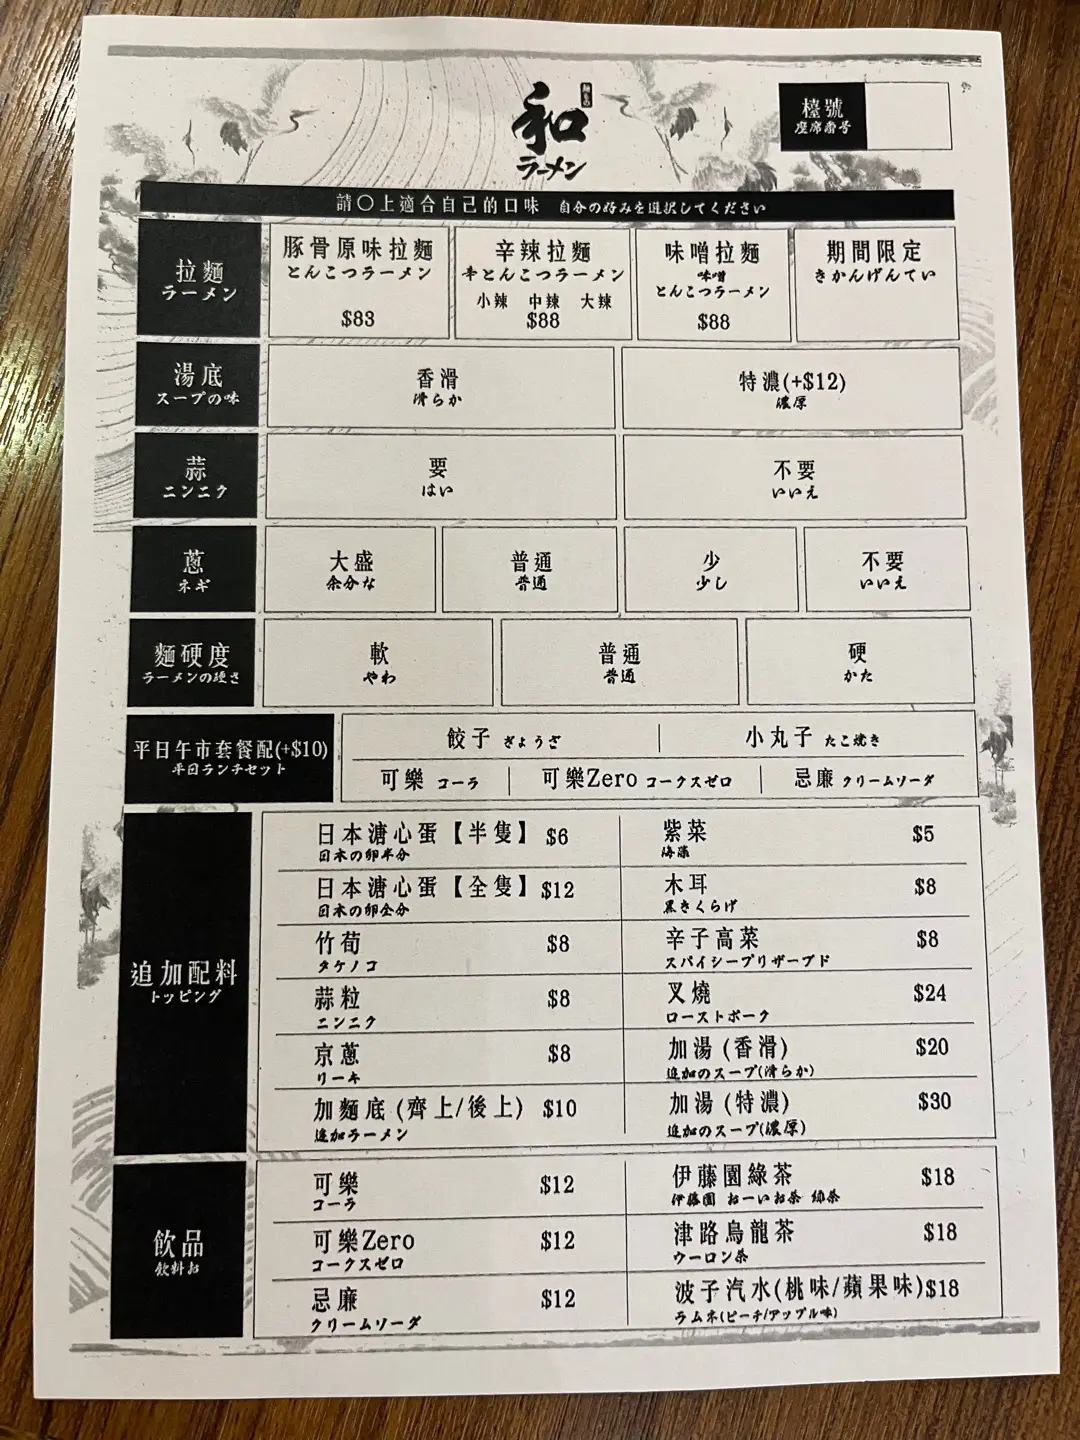 和
ラーメン
檯號
座席番号
請〇上適合自己的口味 自分の好みを選択してください
拉麵
ラーメン
豚骨原味拉麵
とんこつラーメン
$83
辛辣拉麵
辛とんこつラーメン
小辣 中辣 大辣
$88
味噌拉麵
味噌
とんこつラーメン
$88
期間限定
きかんげんてい
湯底
スープの味
香滑
滑らか
特濃(+$12)
濃厚
蒜
ニンニク
要
はい
不要
いいえ
蔥
ネギ
大盛
余分な
普通
普通
少
少し
不要
いいえ
麵硬度
ラーメンの硬さ
軟
やわ
普通
普通
硬
かた
平日午市套餐配(+$10)
平日ランチセット
餃子 ぎょうざ
小丸子 たこ焼き
可樂 コーラ
可樂Zero コークスゼロ
忌廉 クリームソーダ
追加配料
トッピング
日本溏心蛋【半隻】 $6
日本の卵半分
紫菜 $5
海藻
日本溏心蛋【全隻】 $12
日本の卵全分
木耳 $8
黒きくらげ
竹荀 $8
タケノコ
辛子高菜 $8
スパイシープリザーブド
蒜粒 $8
ニンニク
叉燒 $24
ローストポーク
京蔥 $8
リーキ
加湯(香滑) $20
追加のスープ(滑らか)
加麵底(齊上/後上) $10
追加ラーメン
加湯(特濃) $30
追加のスープ(濃厚)
飲品
飲料お
可樂 $12
コーラ
伊藤園綠茶 $18
伊藤園 おーいお茶 緑茶
可樂Zero $12
コークスゼロ
津路烏龍茶 $18
ウーロン茶
忌廉 $12
クリームソーダ
波子汽水(桃味/蘋果味)$18
ラムネ(ピーチ/アップル味)